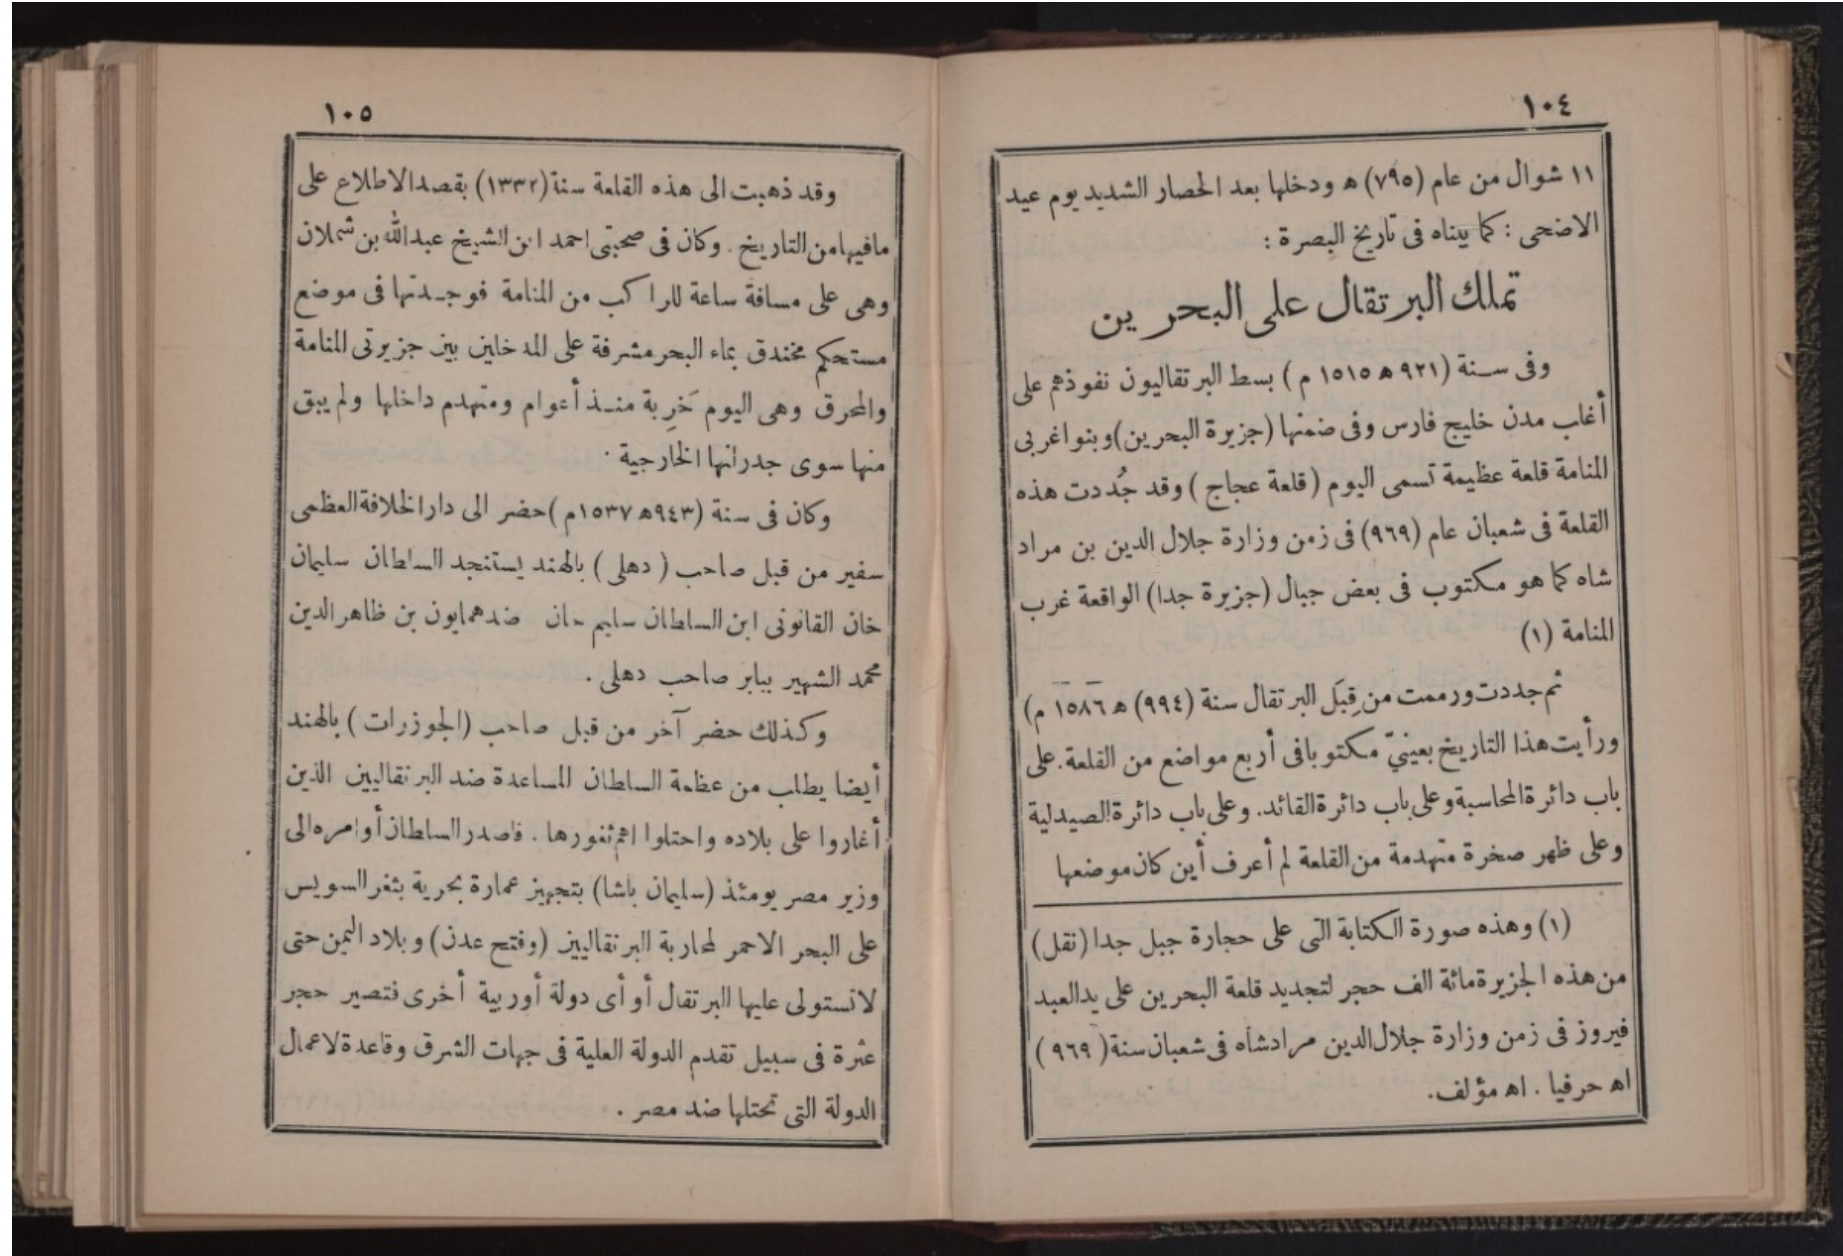 ١٠٤
١١ شوال من عام (٧٩٥) ه ودخلها بعد الحصار الشديد يوم عيد
الاضحى : كما بيناه فى تاريخ البصرة :
تملك البرتقال على البحرين
وفى سنة (٩٢١ ه ١٥١٥ م ) بسط البرتقاليون نفوذهم على
أغاب مدن خليج فارس وفى ضمنها (جزيرة البحرين) وبنوا غربى
المنامة قلعة عظيمة تسمى اليوم ( قلعة عجاج ) وقد جُددت هذه
القلعة فى شعبان عام (٩٦٩) فى زمن وزارة جلال الدين بن مراد
شاه كما هو مكتوب فى بعض جبال (جزيرة جدا) الواقعة غرب
المنامة (١)
ثم جددت ورممت من قِبَل البرتقال سنة (٩٩٤) ه ١٥٨٦ م)
ورأيت هذا التاريخ بعينيّ مكتوبا فى أربع مواضع من القلعة. على
باب دائرة المحاسبة وعلى باب دائرة القائد. وعلى باب دائرة الصيدلية
وعلى ظهر صخرة متهدمة من القلعة لم أعرف أين كان موضعها
(١) وهذه صورة الكتابة التى على حجارة جبل جدا (نقل)
من هذه الجزيرة مائة الف حجر لتجديد قلعة البحرين على يد العبد
فيروز فى زمن وزارة جلال الدين مرادشاه فى شعبان سنة ( ٩٦٩ )
اه حرفيا . اه مؤلف.
١٠٥
وقد ذهبت الى هذه القلعة سنة (١٣٣٢) بقصد الاطلاع على
مافيها من التاريخ . وكان فى صحبتى احمد ابن الشيخ عبدالله بن شملان
وهى على مسافة ساعة للراكب من المنامة فوجدتها فى موضع
مستحكم مخندق بماء البحر مشرفة على المدخلين بين جزيرتى المنامة
والمحرق وهى اليوم خَرِبة منذ أعوام ومتهدم داخلها ولم يبق
منها سوى جدرانها الخارجية .
وكان فى سنة (٩٤٣ه ١٥٣٧م) حضر الى دار الخلافة العظمى
سفير من قبل صاحب ( دهلى ) بالهند يستنجد السلطان سليمان
خان القانونى ابن السلطان سليم خان ضد همايون بن ظاهر الدين
محمد الشهير ببابر صاحب دهلى .
وكذلك حضر آخر من قبل صاحب (الجوزرات ) بالهند
أيضا يطلب من عظمة السلطان المساعدة ضد البرتقاليين الذين
أغاروا على بلاده واحتلوا اهم ثغورها . فاصدر السلطان أوامره الى
وزير مصر يومئذ (سليمان باشا) بتجهيز عمارة بحرية بثغر السويس
على البحر الاحمر لمحاربة البرتقاليين (وفتح عدن) وبلاد اليمن حتى
لا تستولى عليها البرتقال أو أى دولة أوربية أخرى فتصير حجر
عثرة فى سبيل تقدم الدولة العلية فى جهات الشرق وقاعدة لاعمال
الدولة التى تحتلها ضد مصر .